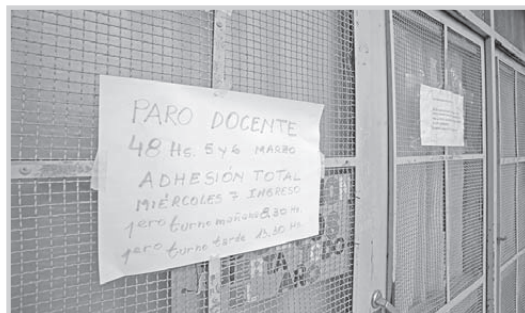 PARO DOCENTE
48 Hs. 5 y 6 MARZO
ADHESIÓN TOTAL
MIÉRCOLES 7 INGRESO
1ero turno mañana 8,30 Hs
1ero turno tarde 13,30 Hs.